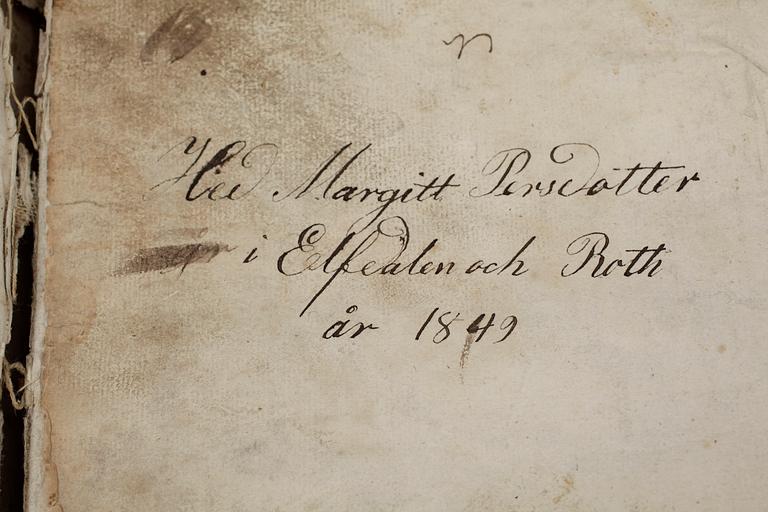 Hed Margitt Persdotter
i Elfedalen och Roth
år 1849